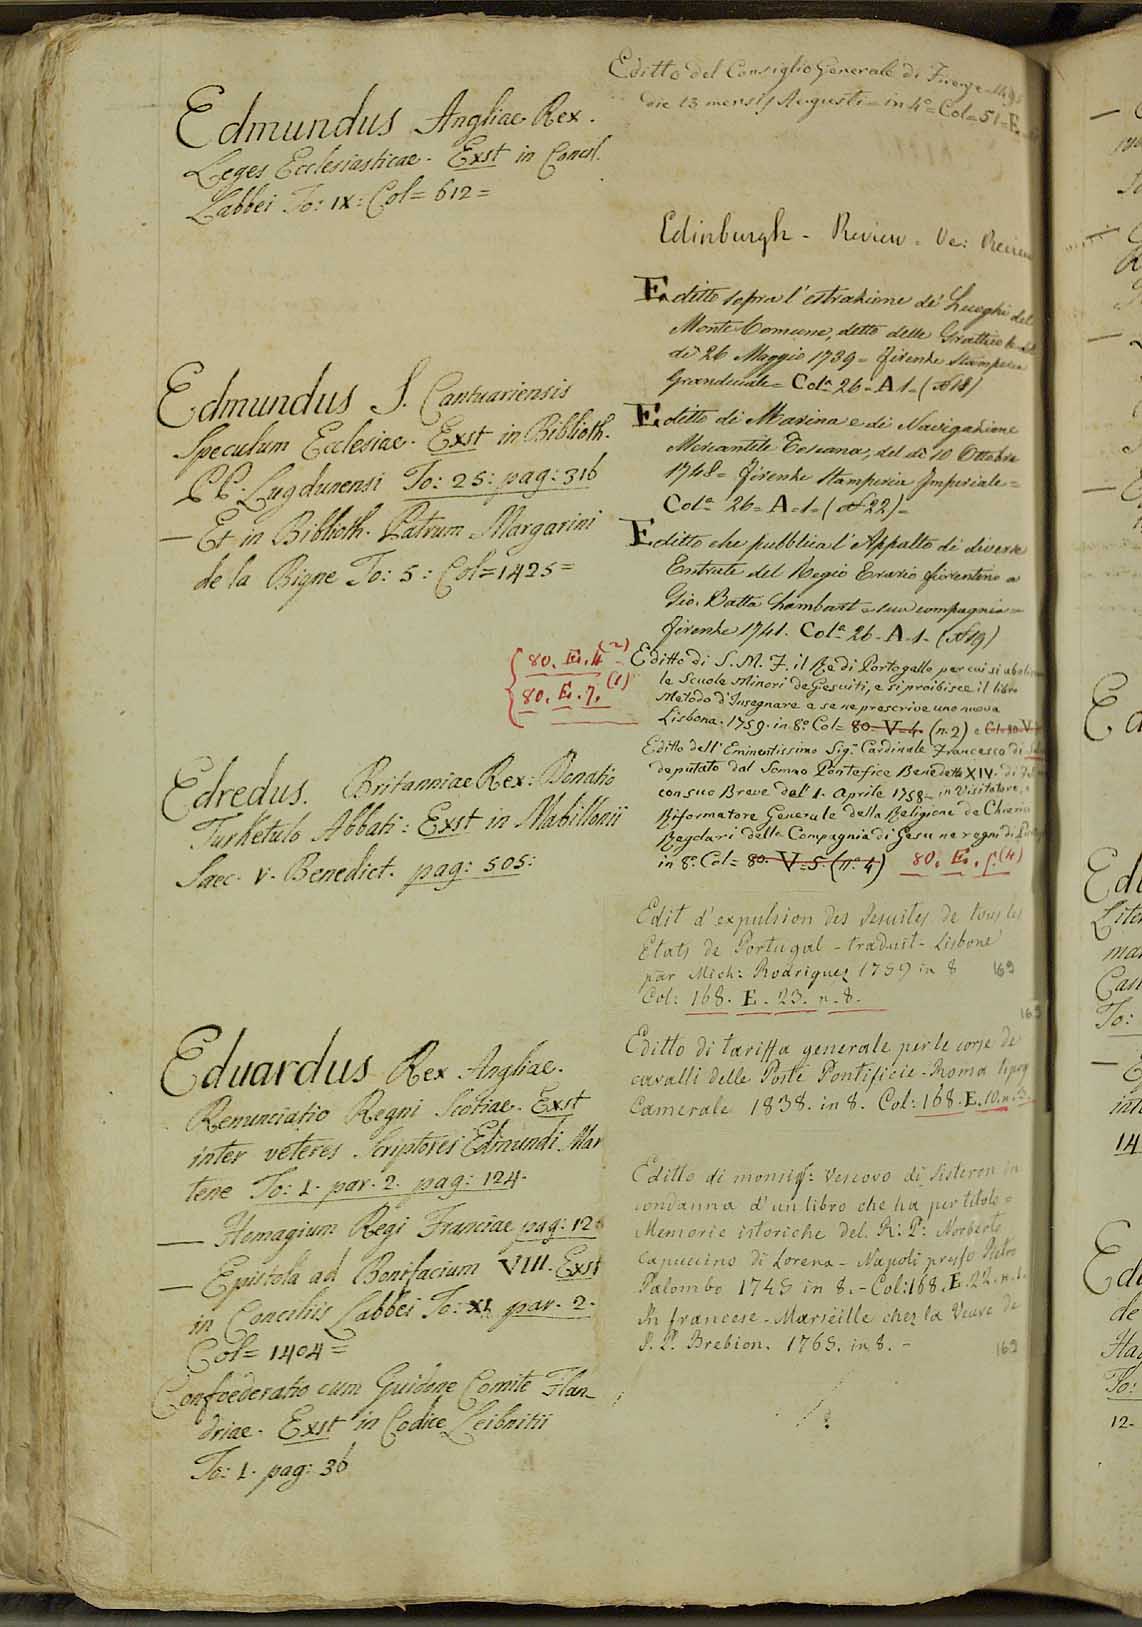 Edmundus Angliae Rex.
Leges Ecclesiasticae. Exst in Concil.
Labbei To: IX: Col= 612=
Edmundus S. Cantuariensis
Speculum Ecclesiae. Exst in Biblioth.
PP. Lugdunensi To: 25: pag: 316
— Et in Biblioth. Patrum Margarini
de la Bigne To: 5: Col=1425=
Edredus. Britanniae Rex: Donatio
Turketulo Abbati: Exst in Mabillonii
Saec. V. Benedict. pag: 505:
Eduardus Rex Angliae.
Renunciatio Regni Scotiae. Exst
inter veteres Scriptores Edmundi Mar
tene To: 1. par. 2. pag: 124.
— Homagium Regi Franciae pag: 12
— Epistola ad Bonifacium VIII. Exst
in Conciliis Labbei To: XI. par. 2.
Col= 1404=
Confoederatio cum Guidone Comite Flan
driae. Exst in Codice Leibnitii
To: 1. pag: 36
Editto del Consiglio Generale di Firenze
die 13 mensis Augusti= in 4º= Col= 51= E
Edinburgh - Review. Ve: Review
Editto sopra l'estrazione de' Luoghi del
Monte Comune, detto delle Graticole
dì 26 Maggio 1739= Firenze Stamperia
Granducale= Colª 26. A 1. (n 18)
Editto di Marina e di Navigazione
Mercantile Toscana, del dì 10 Ottobre
1748= Firenze Stamperia Imperiale=
Colª 26= A=1= (n 22)=
Editto che pubblica l'Appalto di diverse
Entrate del Regio Erario fiorentino a
Gio. Batta Lambart e sua compagnia=
Firenze 1741. Colª 26. A. 1. (n 19)
80. E. 4 (2)
80. E. 7. (1)
Editto di S. M. F. il Re di Portogallo per cui si abolis
le Scuole Minori de Gesuiti, e si proibisce il libro
Metodo d'Insegnare e se ne prescrive uno nuovo
Lisbona. 1759. in 8º Col= 80. V=4. (n. 2) e
Editto dell'Eminentissimo Sigr Cardinale Francesco di
deputato dal Sommo Pontefice Benedetto XIV. di
con suo Breve del' 1. Aprile 1758= in Visitatore, e
Riformatore Generale della Religione de Chierici
Regolari della Compagnia di Gesu ne regni di
in 8º Col= 80. V=5. (nº 4) 80. E. (4)
Edit d'expulsion des Jesuites de tous les
Etats de Portugal - traduit - Lisbone
par Mich: Rodriguez 1759 in 8 169
Col: 168. E. 23. n. 8.
Editto di tariffa generale per le corse de
cavalli delle Poste Pontificie - Roma tipog
Camerale 1838. in 8. Col: 168. E. 10. n.
Editto di monsig: Vescovo di Sisteron in
condanna d'un libro che ha per titolo=
Memorie istoriche del R: P: Norberto
capuccino di Lorena - Napoli presso Pietro
Palombo 1745 in 8. - Col: 168. E. 22. n.
In francese - Marseille chez la Veuve de
J. P. Brebion. 1765. in 8. -